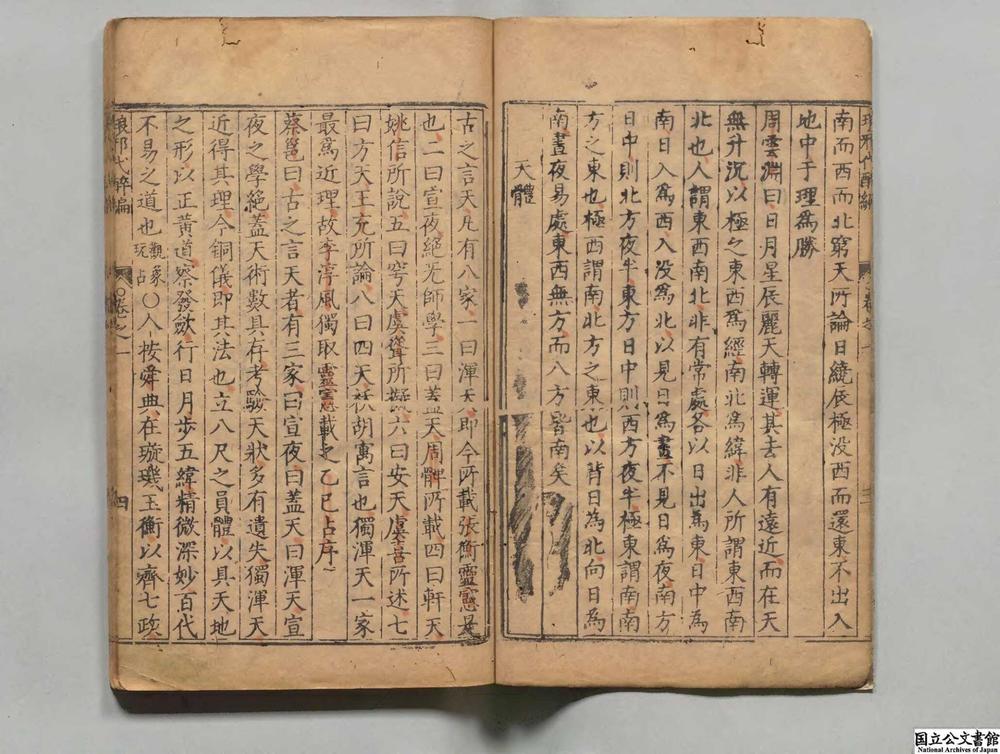 南而西而北窮天所論日繞辰極没西而還東不出入
地中于理爲勝
周雲淵曰日月星辰麗天轉運其去人有遠近而在天
無升沉以極之東西爲經南北爲緯非人所謂東西南
北也人謂東西南北非有常處各以日出爲東日中爲
南日入爲西入没爲北以見日爲晝不見日爲夜南方
日中則北方夜半東方日中則西方夜半極東謂南南
方之東也極西謂南北方之東也以背日為北向日為
南晝夜易處東西無方而八方皆南矣
天體
三
古之言天凡有八家一曰渾天即今所載張衡靈憲是
也二曰宣夜絕无師學三曰蓋天周髀所載四曰軒天
姚信所說五曰穹天虞聳所擬六曰安天虞喜所述七
曰方天王充所論八曰四天祆胡寓言也獨渾天一家
最爲近理故李淳風獨取靈憲載之乙巳占序
蔡邕曰古之言天者有三家曰宣夜曰蓋天曰渾天宣
夜之學絶蓋天術數具存考驗天狀多有遺失獨渾天
近得其理今銅儀即其法也立八尺之員體以具天地
之形以正黃道察發斂行日月步五緯精微深妙百代
不易之道也觀象玩占○人按舜典在璇璣玉衡以齊七政
琅邪代醉編
卷之一
四
国立公文書館
National Archives of Japan